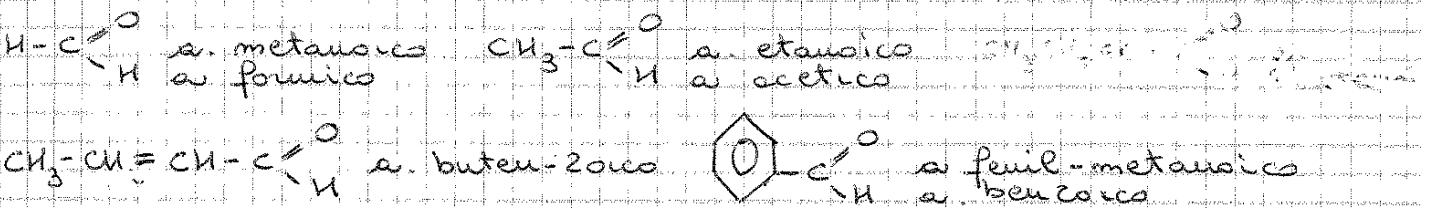 H-C=O H a. metanoico a formico
CH3-C=O H a. etanoico a acetico
CH3-CH=CH-C=O H a. buten-2oico
C=O H a fenil-metanoico a. benzoico